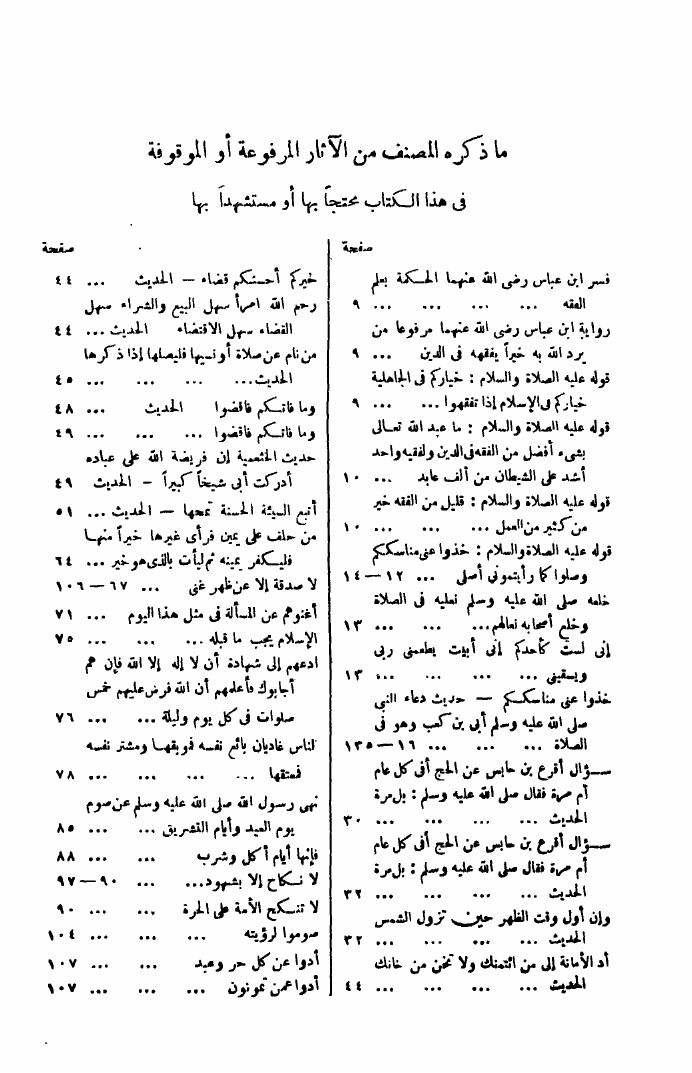 ما ذكره المصنف من الآثار المرفوعة أو الموقوفة
فى هذا الكتاب محتجاً بها أو مستشهداً بها
صفحة
فسر ابن عباس رضى الله عنهما الحكمة بعلم
الفقه ... ... ... ... ٩
رواية ابن عباس رضى الله عنهما مرفوعا من
يرد الله به خيراً يفقهه فى الدين ... ٩
قوله عليه الصلاة والسلام : خياركم فى الجاهلية
خياركم فى الإسلام إذا تفقهوا ... ... ٩
قوله عليه الصلاة والسلام : ما عبد الله تعالى
بشىء أفضل من الفقه فى الدين ولفقيه واحد
أشد على الشيطان من ألف عابد ... ١٠
قوله عليه الصلاة والسلام : قليل من الفقه خير
من كثير من العمل ... ... ... ١٠
قوله عليه الصلاة والسلام : خذوا عنى مناسككم
وصلوا كما رأيتمونى أصلى ... ١٢ – ١٤
خلعه صلى الله عليه وسلم نعليه فى الصلاة
وخلع أصحابه نعالهم ... ... ... ١٣
إنى لست كأحدكم إنى أبيت يطعمنى ربى
ويسقينى ... ... ... ... ١٣
خذوا عنى مناسككم – حديث دعاء النبى
صلى الله عليه وسلم أبى بن كعب وهو فى
الصلاة ... ... ... ١٦ – ١٣٥
سؤال أقرع بن حابس عن الحج أفى كل عام
أم مرة فقال صلى الله عليه وسلم : بل مرة
الحديث ... ... ... ... ٣٠
سؤال أقرع بن حابس عن الحج أفى كل عام
أم مرة فقال صلى الله عليه وسلم : بل مرة
الحديث ... ... ... ... ٣٢
وإن أول وقت الظهر حين تزول الشمس
الحديث ... ... ... ... ٣٢
أد الأمانة إلى من ائتمنك ولا تخن من خانك
الحديث ... ... ... ... ٤٤
صفحة
خيركم أحسنكم قضاء – الحديث ... ٤٤
رحم الله امرأ سهل البيع والشراء سهل
القضاء سهل الاقتضاء الحديث ... ٤٤
من نام عن صلاة أو نسيها فليصلها إذا ذكرها
الحديث ... ... ... ... ٤٥
وما فاتكم فاقضوا الحديث ... ٤٨
وما فاتكم فاقضوا ... ... ... ٤٩
حديث الخثعمية إن فريضة الله على عباده
أدركت أبى شيخاً كبيراً – الحديث ٤٩
أتبع السيئة الحسنة تمحها – الحديث ... ٥١
من حلف على يمين فرأى غيرها خيراً منها
فليكفر يمينه ثم ليأت بالذى هو خير ... ٦٤
لا صدقة إلا عن ظهر غنى ... ٦٧ – ١٠٦
أغنوهم عن المسألة فى مثل هذا اليوم ... ٧١
الإسلام يجب ما قبله ... ... ... ٧٥
ادعهم إلى شهادة أن لا إله إلا الله فإن هم
أجابوك فأعلمهم أن الله فرض عليهم خمس
صلوات فى كل يوم وليلة ... ... ٧٦
الناس غاديان بائع نفسه فموبقها ومشتر نفسه
فمعتقها ... ... ... ... ٧٨
نهى رسول الله صلى الله عليه وسلم عن صوم
يوم العيد وأيام التشريق ... ... ٨٥
فإنها أيام أكل وشرب ... ... ... ٨٨
لا نكاح إلا بشهود ... ... ٩٠ – ٩٧
لا تنكح الأمة على الحرة ... ... ٩٠
صوموا لرؤيته ... ... ... ١٠٤
أدوا عن كل حر وعبد ... ... ١٠٧
أدوا عمن تمونون ... ... ... ١٠٧